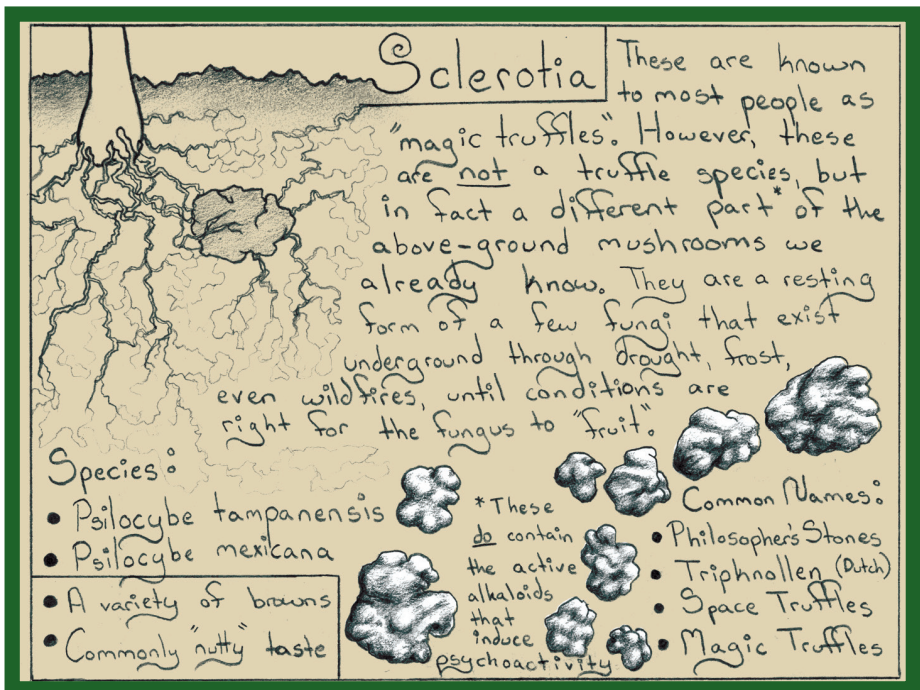 Sclerotia
These are known
to most people as
"magic truffles". However, these
are not a truffle species, but
in fact a different part* of the
above-ground mushrooms we
already know. They are a resting
form of a few fungi that exist
underground through drought, frost,
even wildfires, until conditions are
right for the fungus to "fruit".
Species:
• Psilocybe tampanensis
• Psilocybe mexicana
• A variety of browns
• Commonly "nutty" taste
*These
do contain
the active
alkaloids
that
induce
psychoactivity
Common Names:
• Philosopher's Stones
• Tripknollen (Dutch)
• Space Truffles
• Magic Truffles